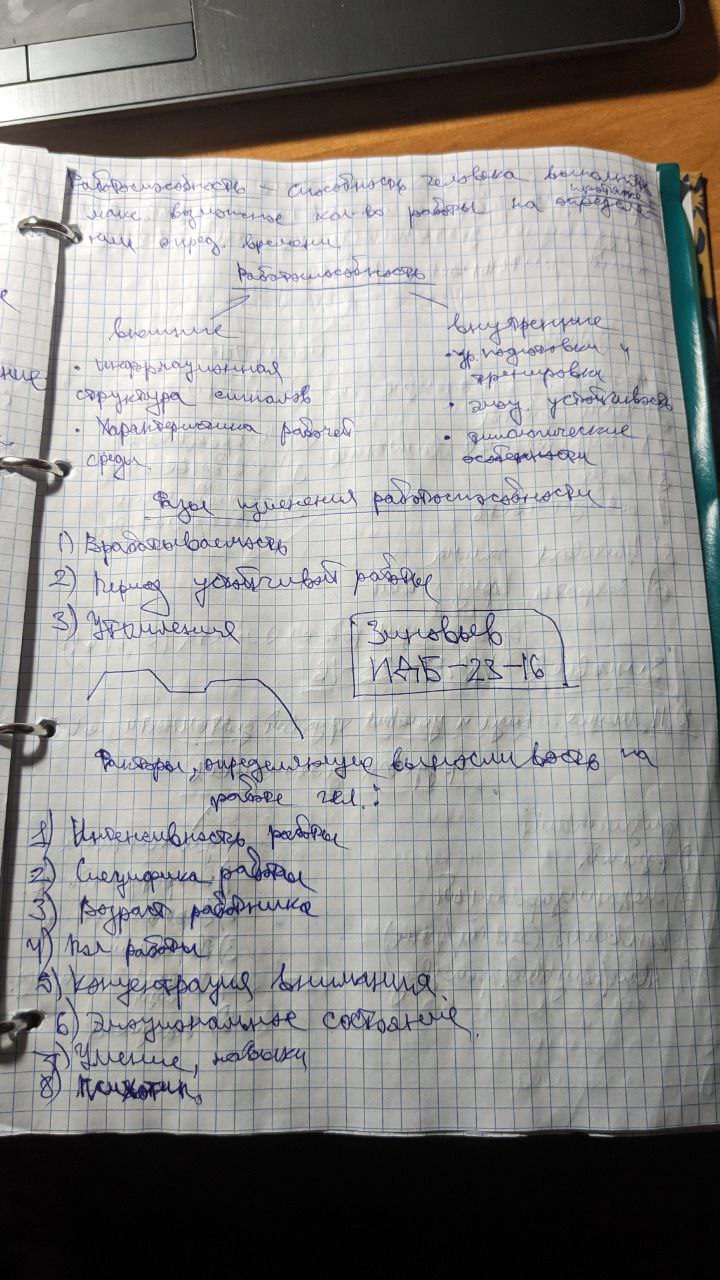 Работоспособность – способность человека выполнять
макс. возможное кол-во работы на протяже-
нии опред. времени.
Работоспособность
внешние
внутренние
• информационная
структура сигналов
• Характеристика рабочей
среды.
• ур. подготовки и
тренировки
• эмоц. устойчивость
• типологические
особенности
Фазы изменения работоспособности
1) Врабатываемость
2) Период устойчивой работы
3) Утомления
Зиновьев
ИДБ-23-16
Факторы, определяющие выносливость на
работе чел.:
1) Интенсивность работы
2) Специфика работы
3) Возраст работника
4) Пол работы
5) Концентрация внимания.
6) Эмоциональное состояние.
7) Умение, навыки
8) Психотип.
ние